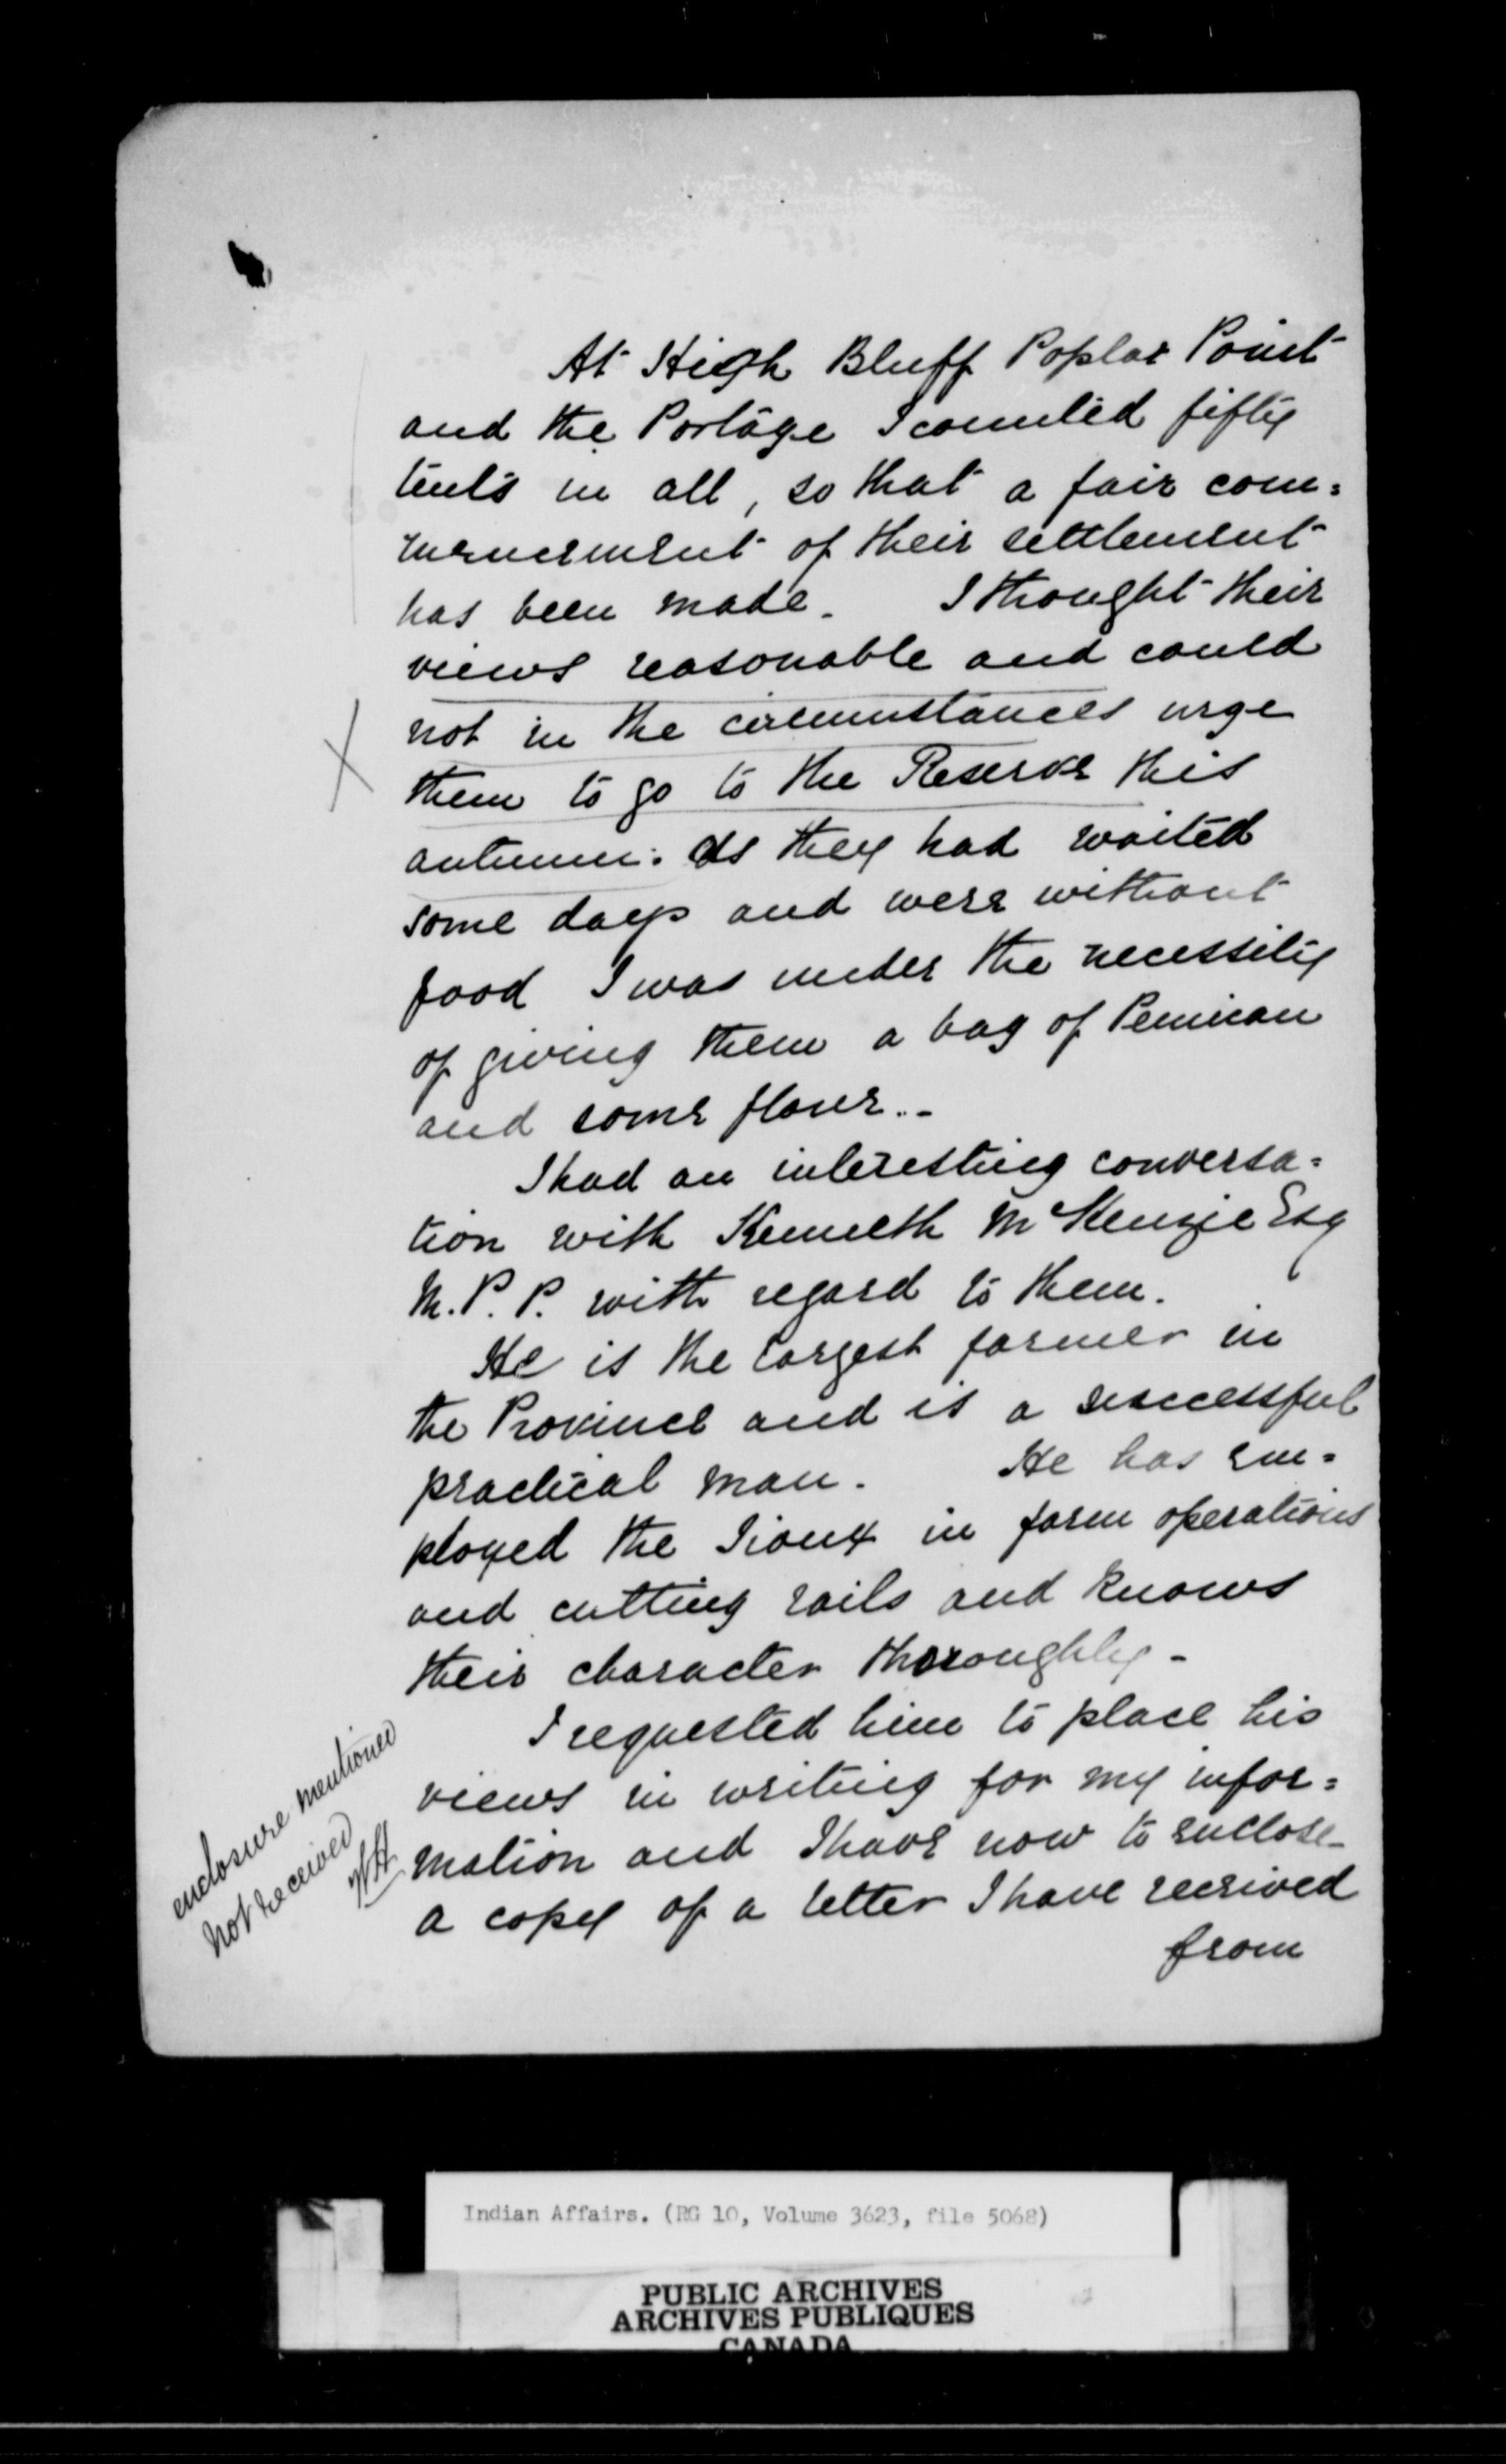 At High Bluff Poplar Point
and the Portage I counted fifty
tents in all, so that a fair com=
mencement of their settlement
has been made. I thought their
views reasonable and could
not in the circumstances urge
them to go to the Reserve this
autumn. As they had waited
some days and were without
food I was under the necessity
of giving them a bag of Pemican
and some flour..-
I had an interesting conversa=
tion with Kenneth McKenzie Esq
M.P.P. with regard to them.
He is the largest farmer in
the Province and is a successful
practical man. He has em=
ployed the Sioux in farm operations
and cutting rails and knows
their character thoroughly-
I requested him to place his
views in writing for my infor=
mation and I have now to enclose
a copy of a letter I have received
from
enclosure mentioned
not received
Indian Affairs. (RG 10, Volume 3623, file 5068)
PUBLIC ARCHIVES
ARCHIVES PUBLIQUES
CANADA